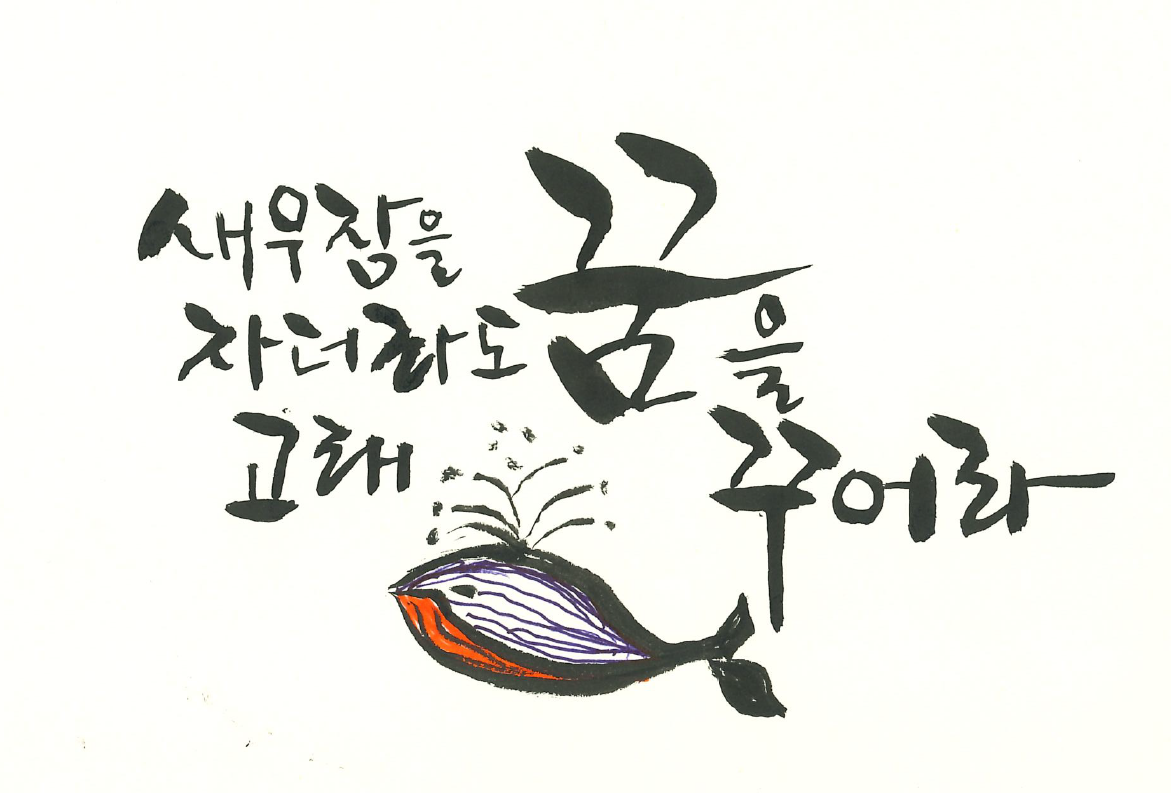 새우잠을
자더라도
고래
꿈을
꾸어라